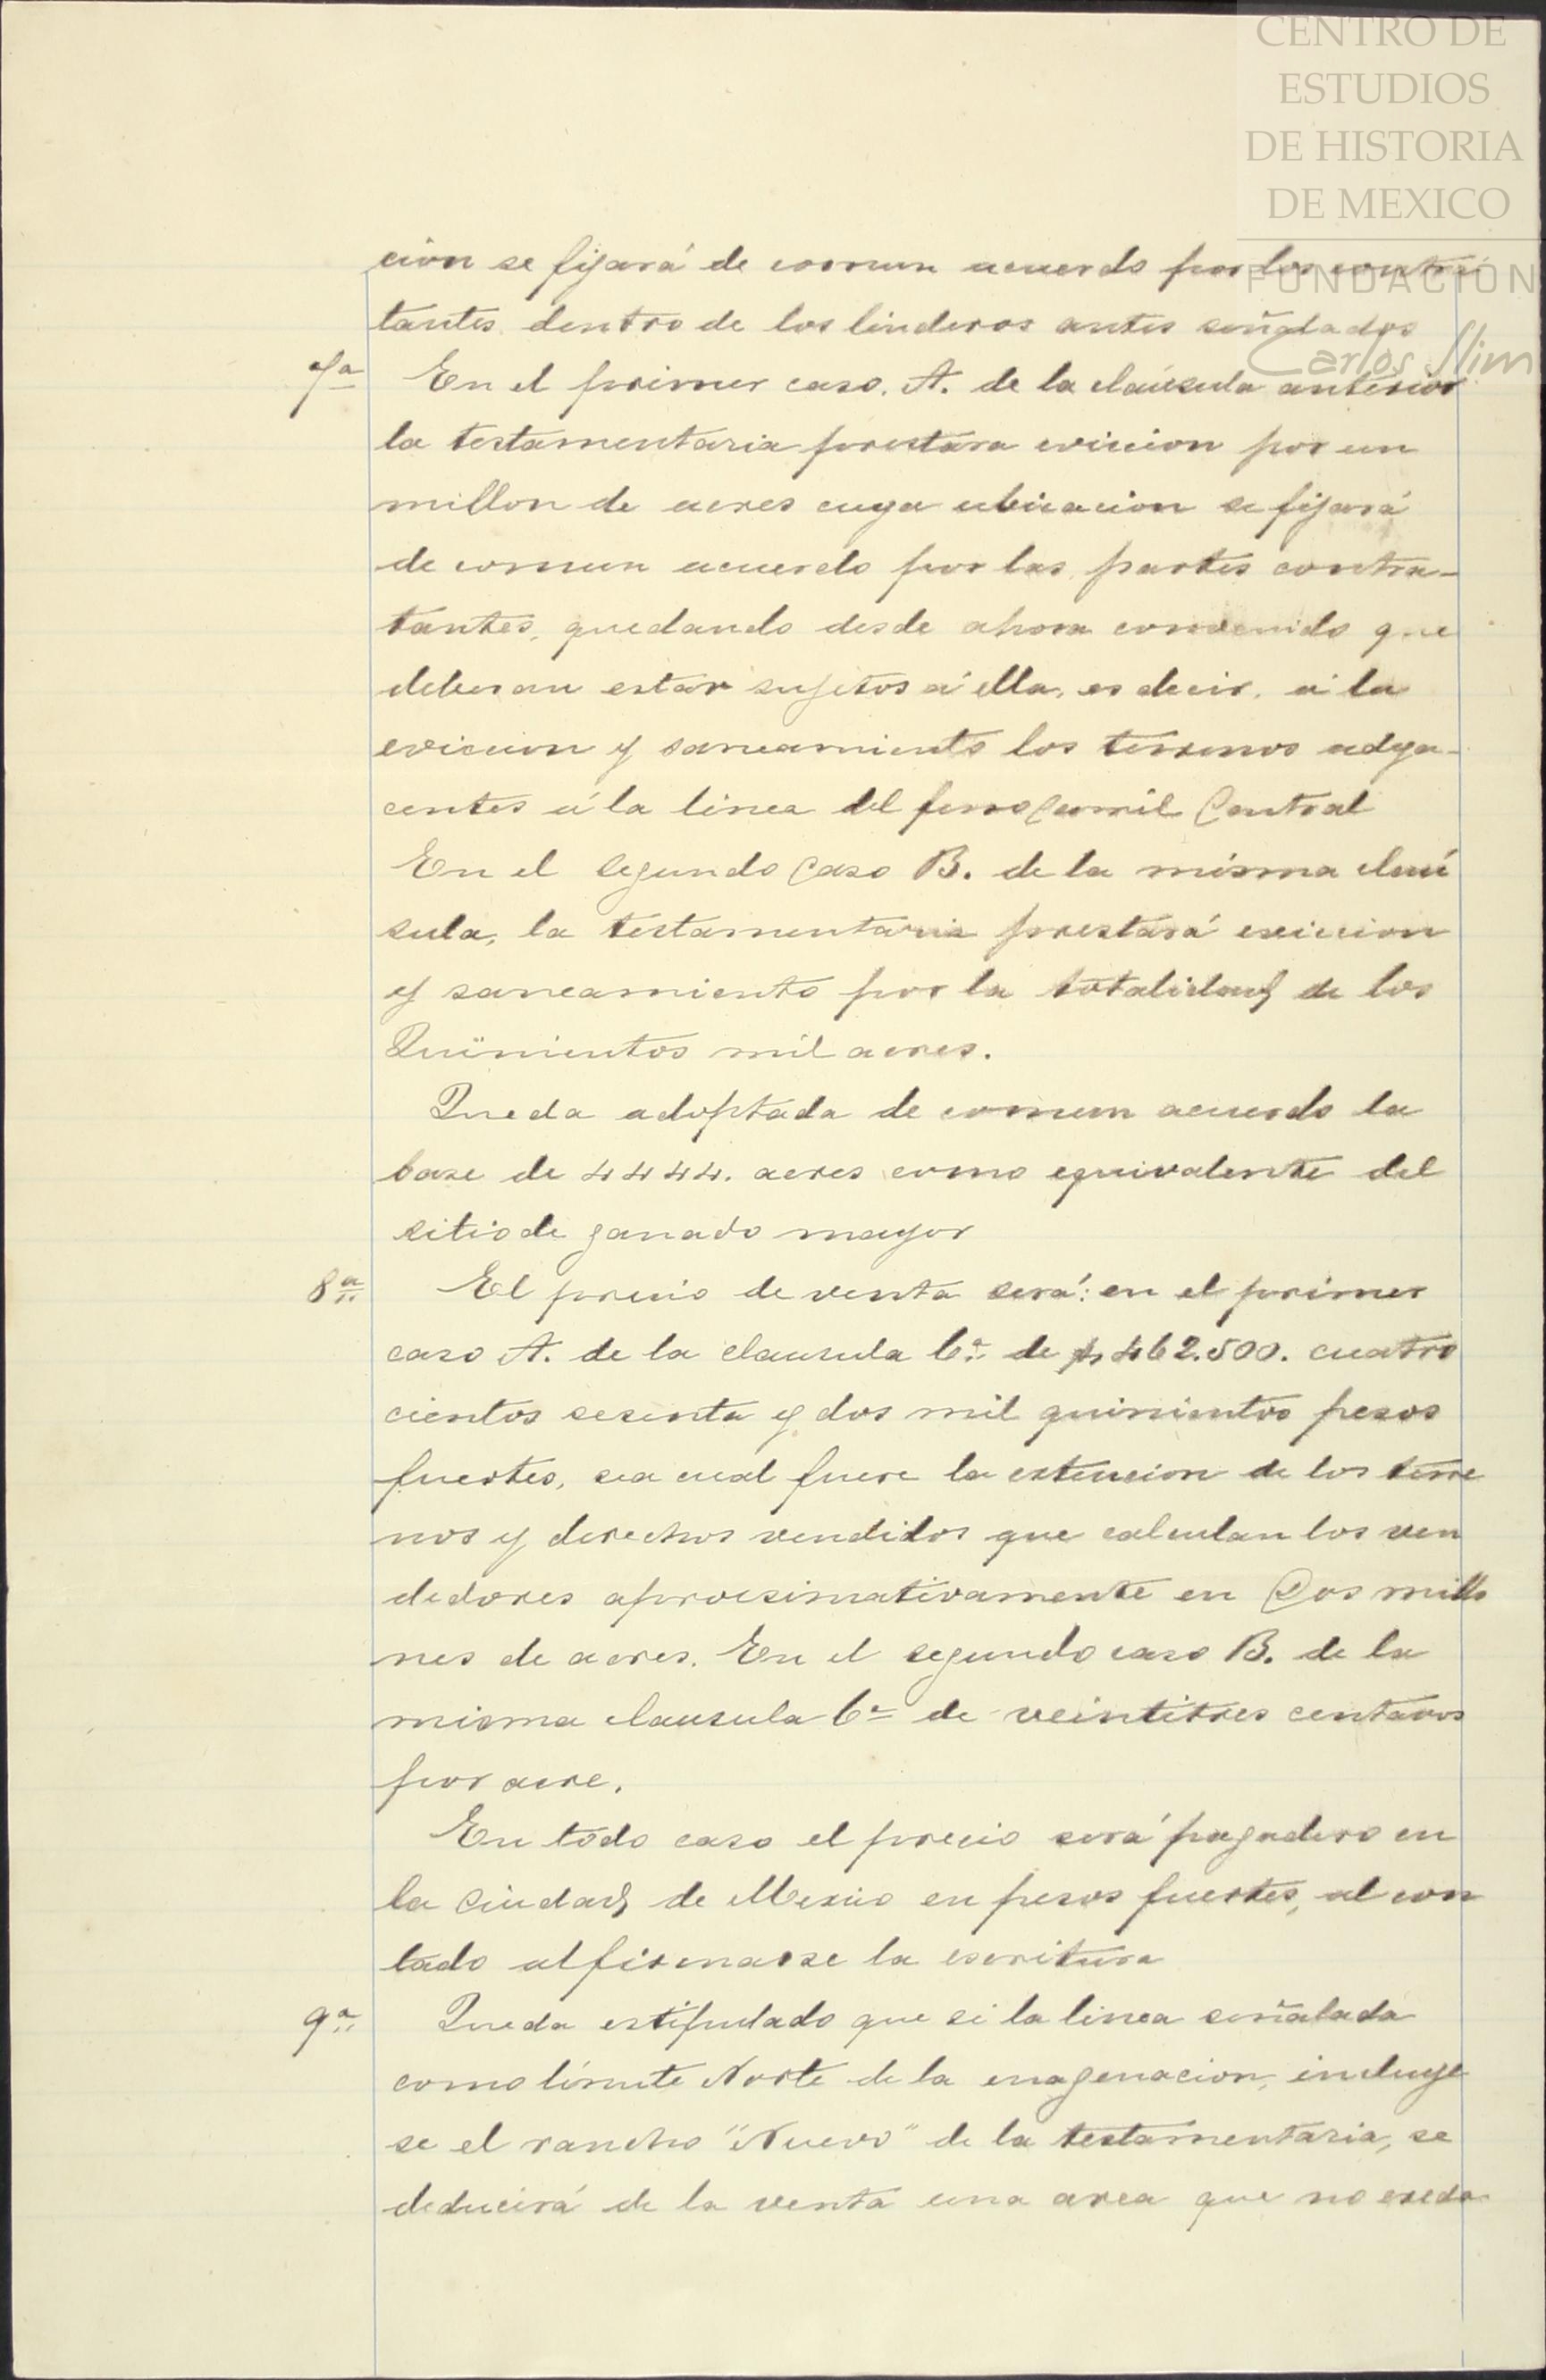 CENTRO DE
ESTUDIOS
DE HISTORIA
DE MEXICO
FUNDACIÓN
Carlos Slim
cion se fijará de comun acuerdo por los contra
tantes dentro de los linderos antes señalados
7a En el primer caso. A. de la claúsula anterior
la testamentaria prestara eviccion por un
millon de acres cuya ubicacion se fijará
de comun acuerdo por las partes contra-
tantes, quedando desde ahora convenido que
deberan estar sujetos á ella, es decir, á la
eviccion y saneamiento los terrenos adya-
centes á la linea del ferro Carril Central
En el segundo Caso B. de la misma claú
sula, la testamentaria prestará eviccion
y saneamiento por la totalidad de los
Quinientos mil acres.
Queda adoptada de comun acuerdo la
base de 4444. acres como equivalente del
sitio de ganado mayor
8a El precio de venta será: en el primer
caso A. de la clausula 6a de $ 462.500. cuatro
cientos sesenta y dos mil quinientos pesos
fuertes, sea cual fuere la estencion de los terre
nos y derechos vendidos que calculan los ven
dedores aprocsimativamente en Dos millo
nes de acres. En el segundo caso B. de la
misma clausula 6a de veintitres centavos
por acre.
En todo caso el precio será pagadero en
la Ciudad de Mexico en pesos fuertes, al con
tado al firmarse la escritura
9a Queda estipulado que si la linea señalada
como limite Norte de la enagenacion, incluye
se el rancho "Nuevo" de la testamentaria, se
deducirá de la venta una area que no exeda